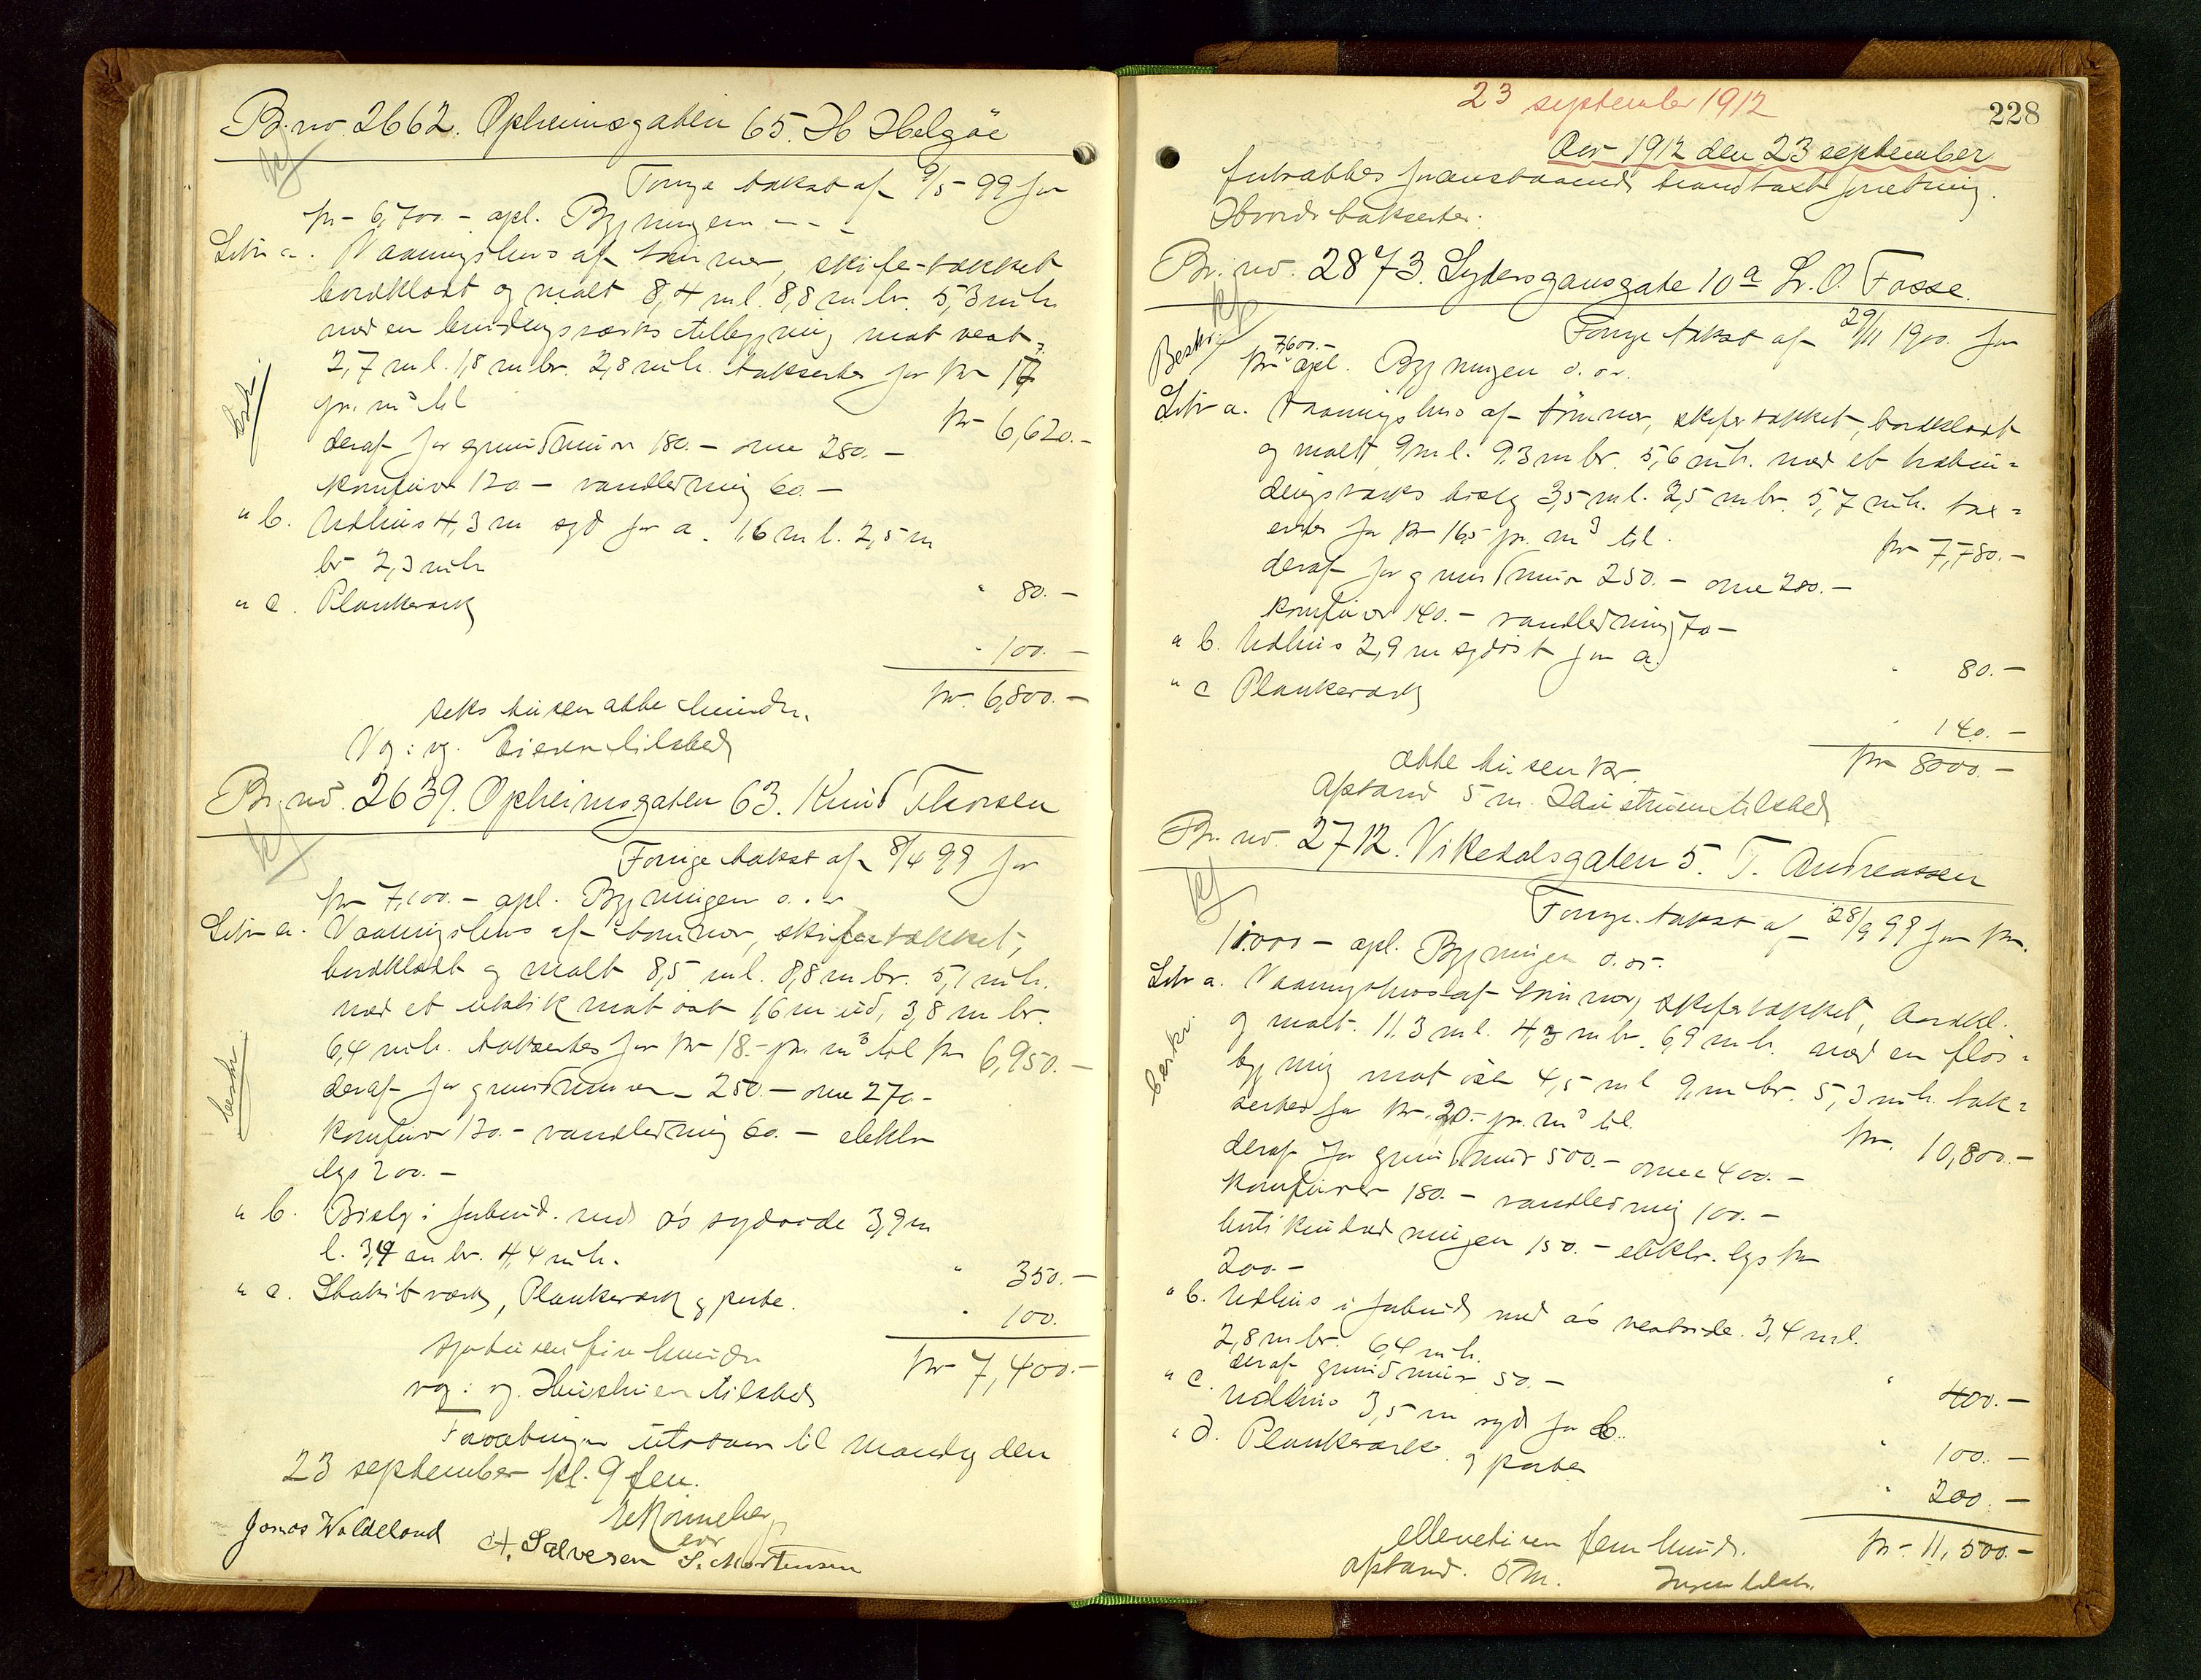 Br. no. 2662. Opheimsgaten 65. H Helgøe
Forrige takst af 9/5 99 for
kr 6,700.- opl. Bygningen - - -
Litr a. Vaaningshus af tømmer, skifertækket
bordklædt og malt 8,4 m l. 8,8 m br. 5,3 m h.
med en bindingsværks tilbygning mot vest
2,7 m l. 1,8 m br. 2,8 m h. takseret for kr 17
pr. m³ til kr 6,620.-
deraf for grundmur 180.- ovne 280.-
komfyrer 120.- vandledning 60.-
" b. Udhus 4,3 m syd for a. 1,6 m l. 2,5 m
br 2,3 m h " 80.-
" c. Plankeværk
" 100.-
kr. 6,800.-
seks tusen otte hundre.
Vg: vg. Eieren tilsted
Br. no. 2639. Opheimsgaten 63. Knud Thorsen
Forrige takst af 8/4 99 for
kr 7,100.- opl. Bygningen o. s. v
Litr a. Vaaningshus af tømmer, skifertækket,
bordklædt og malt 8,5 m l. 8,8 m br. 5,1 m h.
med et utstik mot øst 1,6 m ud, 3,8 m br.
6,4 m h. takseret for kr 18.- pr. m³ til kr 6,950.-
deraf for grundmuren 250.- ovne 270.-
komfyrer 120.- vandledning 60.- elektr
lys 200.-
beskr
" b. Bislag i forbind. med a's sydside 3,9 m
l. 3,4 m br. 4,4 m h. " 350.-
" c. Stakitværk, Plankeværk og porte. " 100.
kr 7,400.-
syvtusen fire hundre
vg: vg. Hustruen tilsted
Forretningen utsattes til mandag den
23 september kl. 9 fm.
Jonas Waldeland A. Salvesen S. Mortensen
23 september 1912
228
Aar 1912 den 23 september
fortsattes foranstaaende brandtakstforretning.
Hvorda takseertes:
Br. no. 2873. Lyder Sagensgate 10a L. O. Fosse.
Beskr. Forrige takst af 29/11 1900. for
kr 7,600.- opl. Bygningen o. s. v.
Litr a. Vaaningshus af tømmer, skifertækket, bordklædt
og malt 9 m l. 9,3 m br. 5,6 m h. med et træbin=
dingsværks bislag 3,5 m l. 2,5 m br. 5,7 m h. tax=
eret for kr 16,5 pr. m³ til kr 7,780.-
deraf for grundmur 250.- ovne 280.-
komfyrer 140.- vandledning 70.-
" b. Udhus 2,9 m sydøst for a. " 80.-
" c Plankeværk
" 140.-
kr 8000.-
otte tusen kr.
afstand 5 m. Hustruen tilsted
Br. no. 2712. Vikedalsgaten 5. T. Andreassen
Forrige takst af 28/9 99 for kr.
11,000 - opl. Bygningen o. s. v.
Litr a. Vaaningshus af tømmer, skifertækket, bordkl.
og malt. 11,3 m l. 4,3 m br. 6,9 m h. med en fløi=
bygning mot øst 4,5 m l 9, m br. 5,3 m h. tak=
seret for kr. 20.- pr. m³ til kr. 10,800.-
beskr.
deraf for grundmur 500.- ovne 400.-
komfyrer 180.- vandledning 100.-
butikindredningen 150.- elektr. lys kr
200.-
" b. Udhus i forbind med a's vestside. 3,4 m l.
2,8 m br. 6,4 m h.
deraf grundmur 50.- " 400.-
" c. Udhus 3,5 m syd for b. " 100.-
" d. Plankeværk og porter " 200.-
kr 11,500.-
ellevetusen fem hundr.
afstand. 5 m. Ingen tilst.